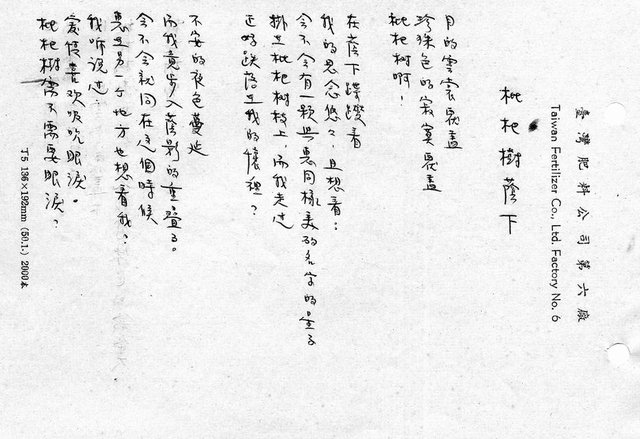 臺灣肥料公司第六廠
Taiwan Fertilizer Co., Ltd. Factory No. 6
枇杷樹蔭下
月的雲裳覆蓋
珍珠色的寂寞覆蓋
枇杷樹啊！
在蔭下躑躅着
我的思念悠々，且想着：
會不會有一顆與惠同樣美的名字的星子
掛在枇杷樹枝上，而我走过
正好跌落在我的懷裡？
不安的夜色蔓延
而我竟步入蔭影的重疊了。
会不会就同在这個時候
惠在另一个地方也想着我？
我听说过：
爱侵喜欢吸吮眼淚。
枇杷樹需不需要眼淚？
T5 136×192mm (50.1.) 2000本